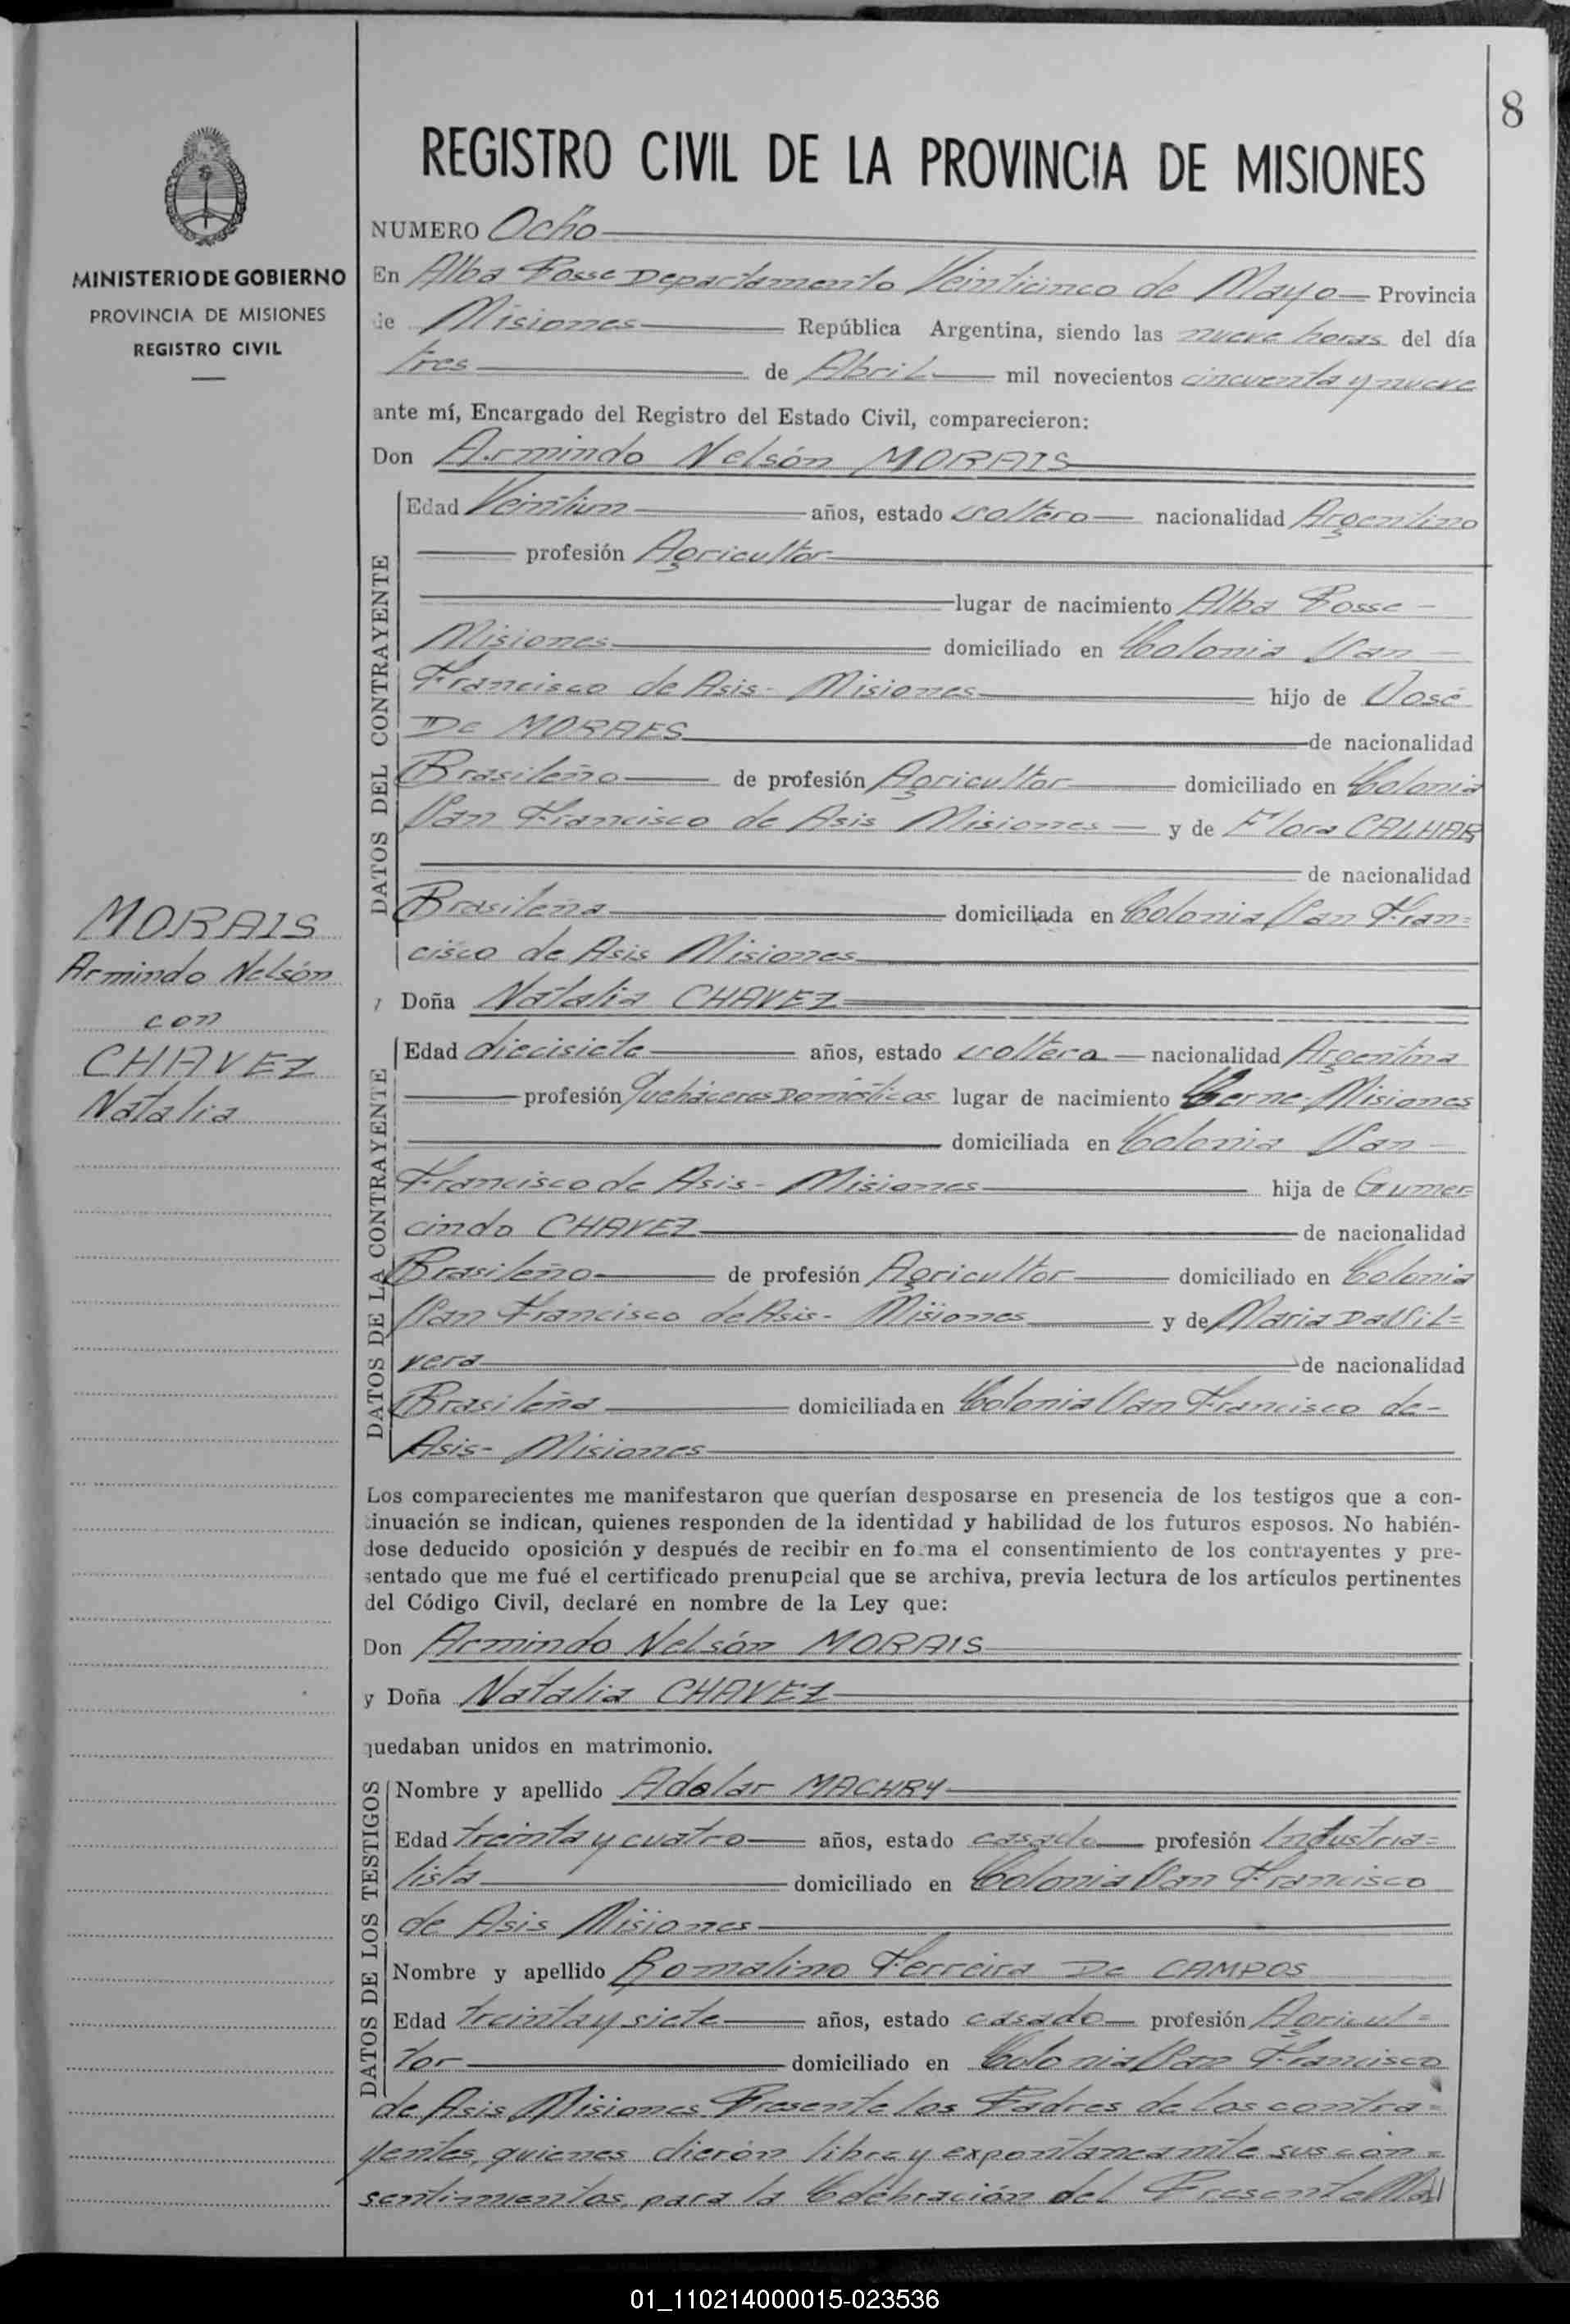 8
REGISTRO CIVIL DE LA PROVINCIA DE MISIONES
MINISTERIO DE GOBIERNO
PROVINCIA DE MISIONES
REGISTRO CIVIL
MORAIS
Armindo Nelsón
con
CHAVEZ
Natalia
NUMERO Ocho
En Alba Posse Departamento Veinticinco de Mayo Provincia
de Misiones República Argentina, siendo las nueve horas del día
tres de Abril mil novecientos cincuenta y nueve
ante mí, Encargado del Registro del Estado Civil, comparecieron:
Don Armindo Nelsón MORAIS
DATOS DEL CONTRAYENTE
Edad Veintiun años, estado soltero nacionalidad Argentino
profesión Agricultor
lugar de nacimiento Alba Posse -
Misiones domiciliado en Colonia San -
Francisco de Asis - Misiones hijo de José
De MORAES de nacionalidad
Brasileño de profesión Agricultor domiciliado en Colonia
San Francisco de Asis Misiones y de Flora CALHAR
de nacionalidad
Brasileña domiciliada en Colonia San Fran=
cisco de Asis Misiones
y Doña Natalia CHAVEZ
DATOS DE LA CONTRAYENTE
Edad diecisiete años, estado soltera nacionalidad Argentina
profesión Quehaceres Domésticos lugar de nacimiento Misiones
domiciliada en Colonia San -
Francisco de Asis - Misiones hija de Gumer=
cindo CHAVEZ de nacionalidad
Brasileño de profesión Agricultor domiciliado en Colonia
San Francisco de Asis - Misiones y de Maria Da Sil=
vera de nacionalidad
Brasileña domiciliada en Colonia San Francisco de -
Asis - Misiones
Los comparecientes me manifestaron que querían desposarse en presencia de los testigos que a con-
tinuación se indican, quienes responden de la identidad y habilidad de los futuros esposos. No habién-
dose deducido oposición y después de recibir en forma el consentimiento de los contrayentes y pre-
sentado que me fué el certificado prenupcial que se archiva, previa lectura de los artículos pertinentes
del Código Civil, declaré en nombre de la Ley que:
Don Armindo Nelsón MORAIS
y Doña Natalia CHAVEZ
quedaban unidos en matrimonio.
DATOS DE LOS TESTIGOS
Nombre y apellido Adolar MACHRY
Edad treinta y cuatro años, estado casado profesión Industria=
lista domiciliado en Colonia San Francisco
de Asis Misiones
Nombre y apellido Romalino Ferreira De CAMPOS
Edad treinta y siete años, estado casado profesión Agricul=
tor domiciliado en Colonia San Francisco
de Asis Misiones Presente los Padres de los contra=
yentes, quienes dierón libre y expontaneamnte sus con=
sentimientos, para la Celebración del Presente
01_110214000015-023536